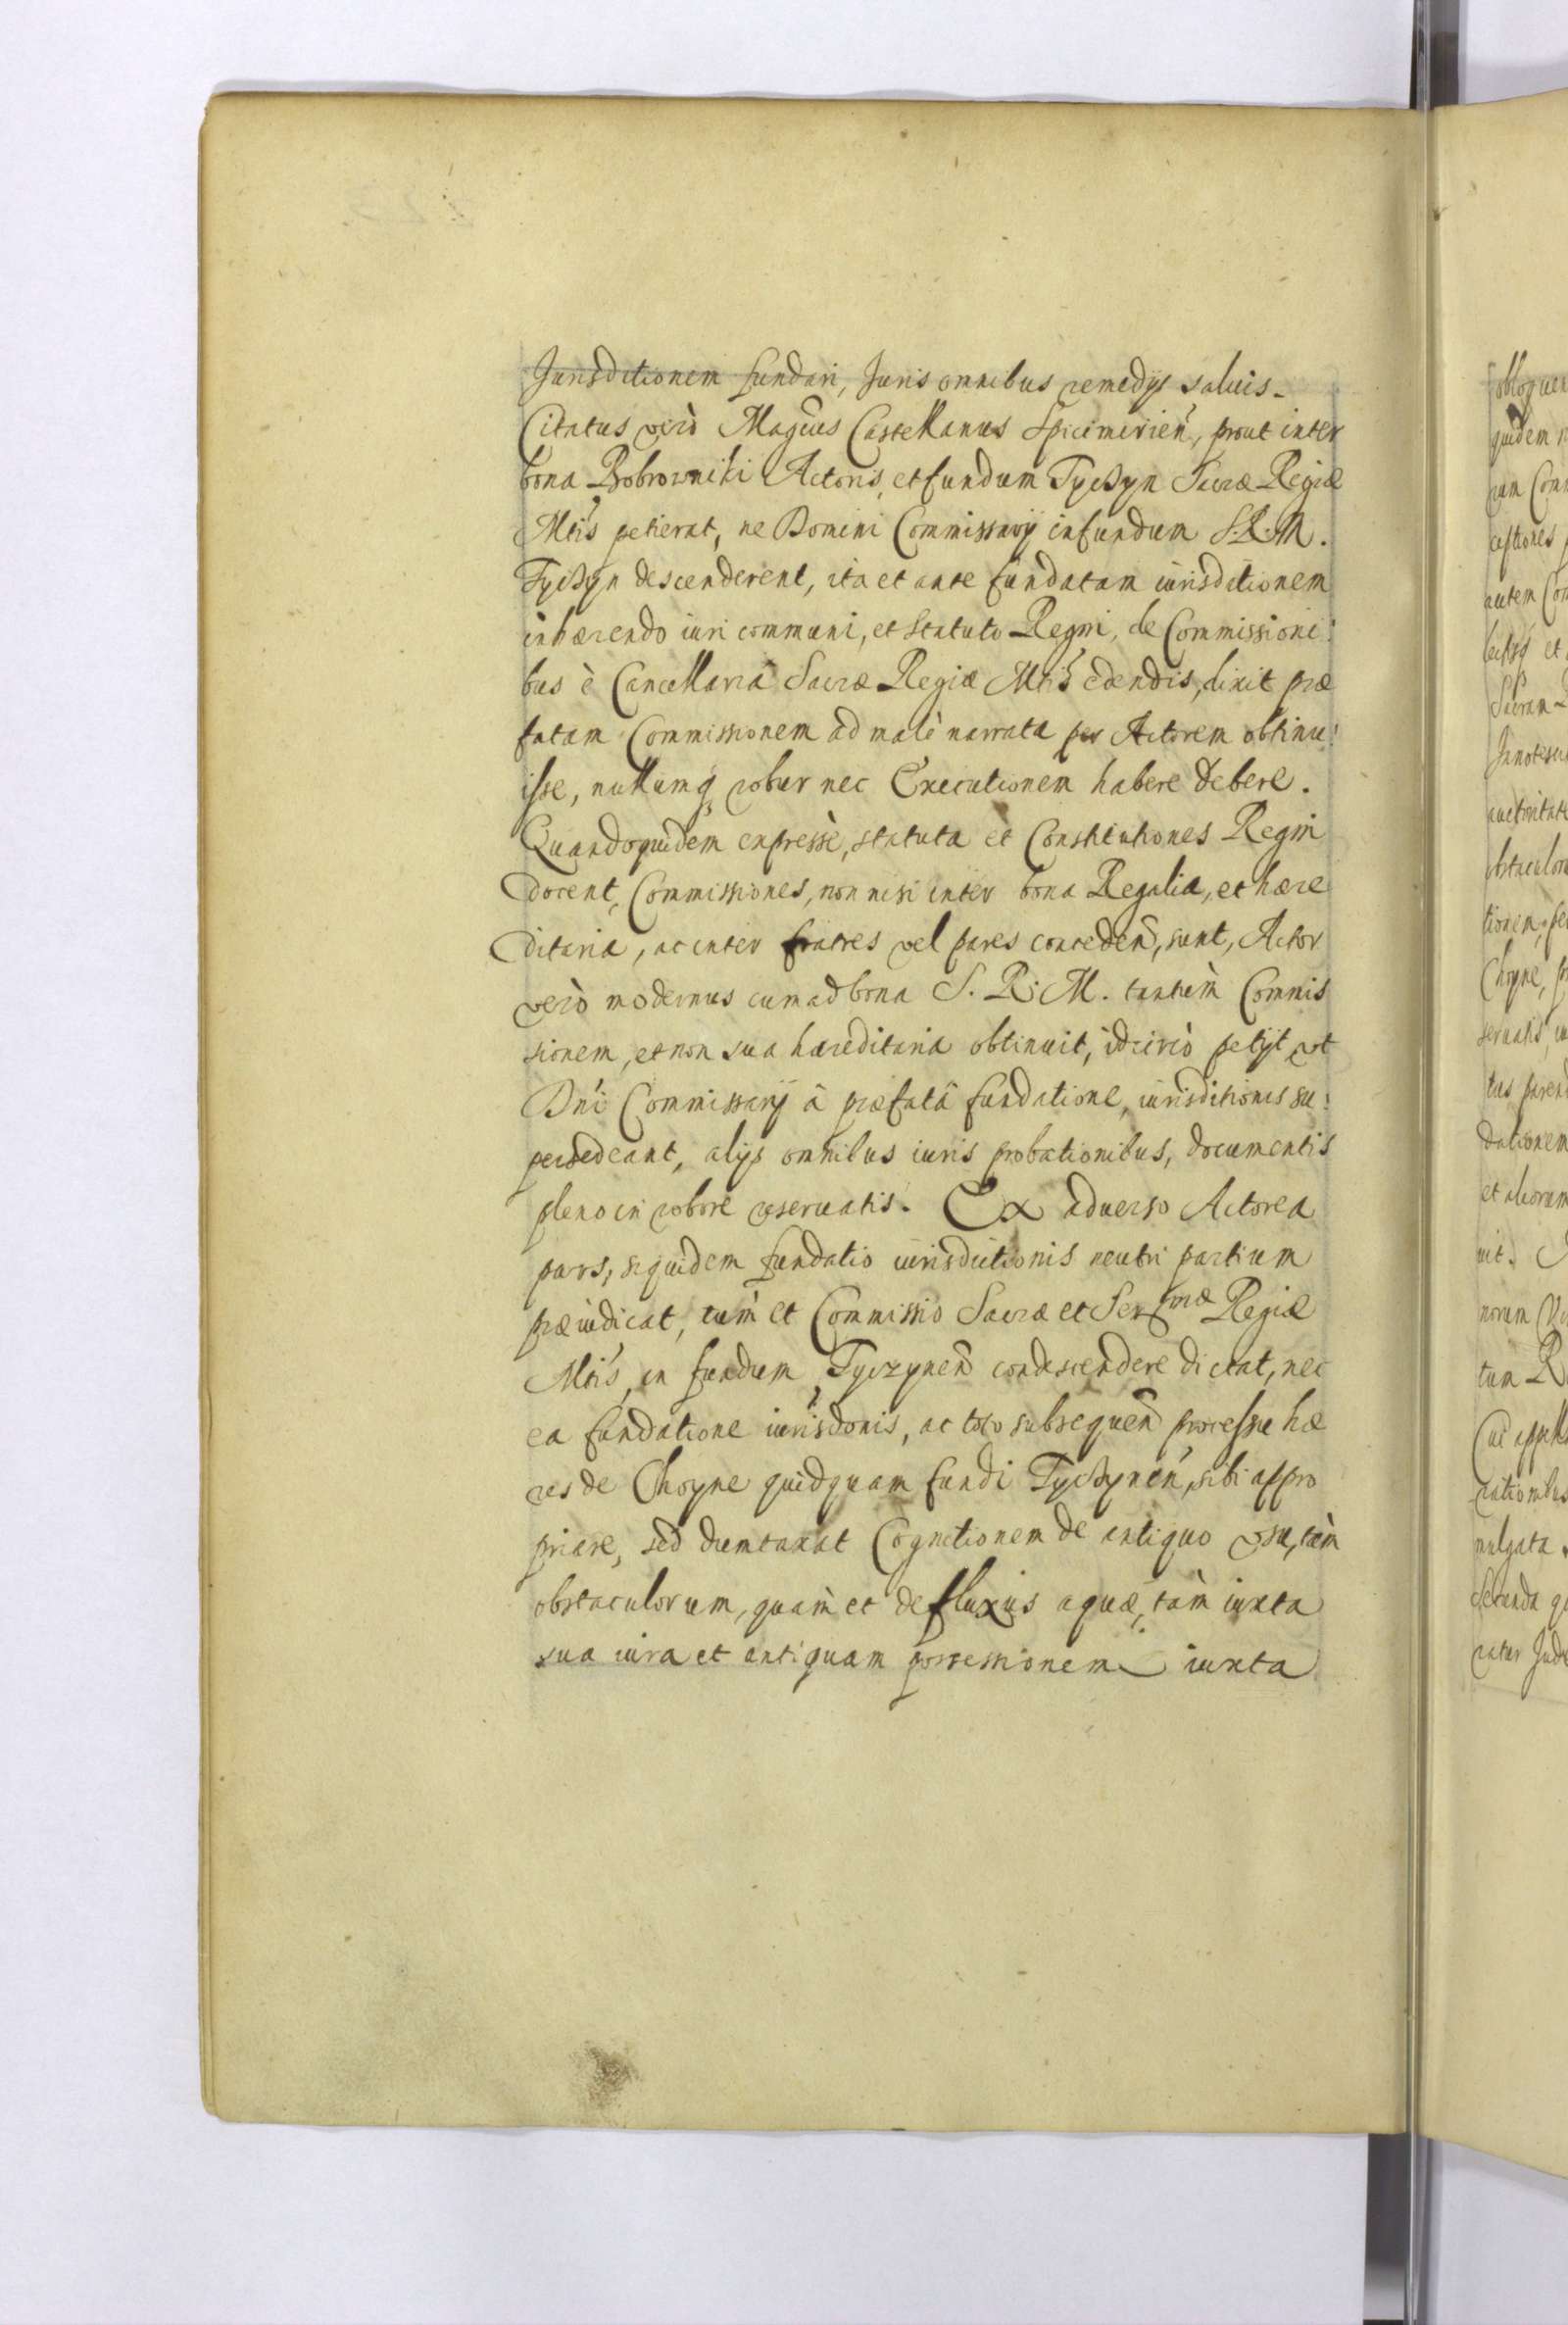 Jurisditionem fundari, Juris omnibus remedijs saluis.
Citatus verò Magcus Castellanus Spicimirien, prout inter
bona Bobrowniki Actoris, et fundum Tyczyn Sacræ Regiæ
Mtis petierat, ne Domini Commissarij in fundum S.R.M.
Tyczyn descenderent, ita et ante fundatam iurisditionem
inhærendo iuri communi, et statuto Regni, de Commissioni:
bus è Cancellaria Sacræ Regiæ Mtis edendis, dixit præ
fatam Commissionem ad malè narrata per Actorem obtinu:
isse, nullumq robur nec Executionem habere debere.
Quandoquidem expressè, statuta et Constitutiones Regni
docent, Commissiones, non nisi inter bona Regalia, et hære
ditaria, ac inter fratres vel pares conceden, sunt, Actor
verò modernus cum ad bona S. R. M. tantùm Commis
sionem, et non sua hæreditaria obtinuit, idcircò petijt vt
Dni Commissarij â præfatâ fundatione, iurisditionis su:
persedeant, alijs omnibus iuris probationibus, documentis
pleno in robore reseruatis. Ex aduerso Actorea
pars, siquidem fundatio iurisdictionis neutri partium
præiudicat, tùm et Commissio Sacræ et Sermæ Regiæ
Mtis, in fundum Tyczynen condescendere dictat, nec
ea fundatione iurisdonis, ac toto subsequen processu hæ
res de Choyne quidquam fundi Tyczynen, sibi appro
priare, sed dumtaxat Cognitionem de antiquo vsu, tàm
obstaculorum, quàm et defluxus aquæ, tàm iuxta
sua iura et antiquam possessionem iuxta